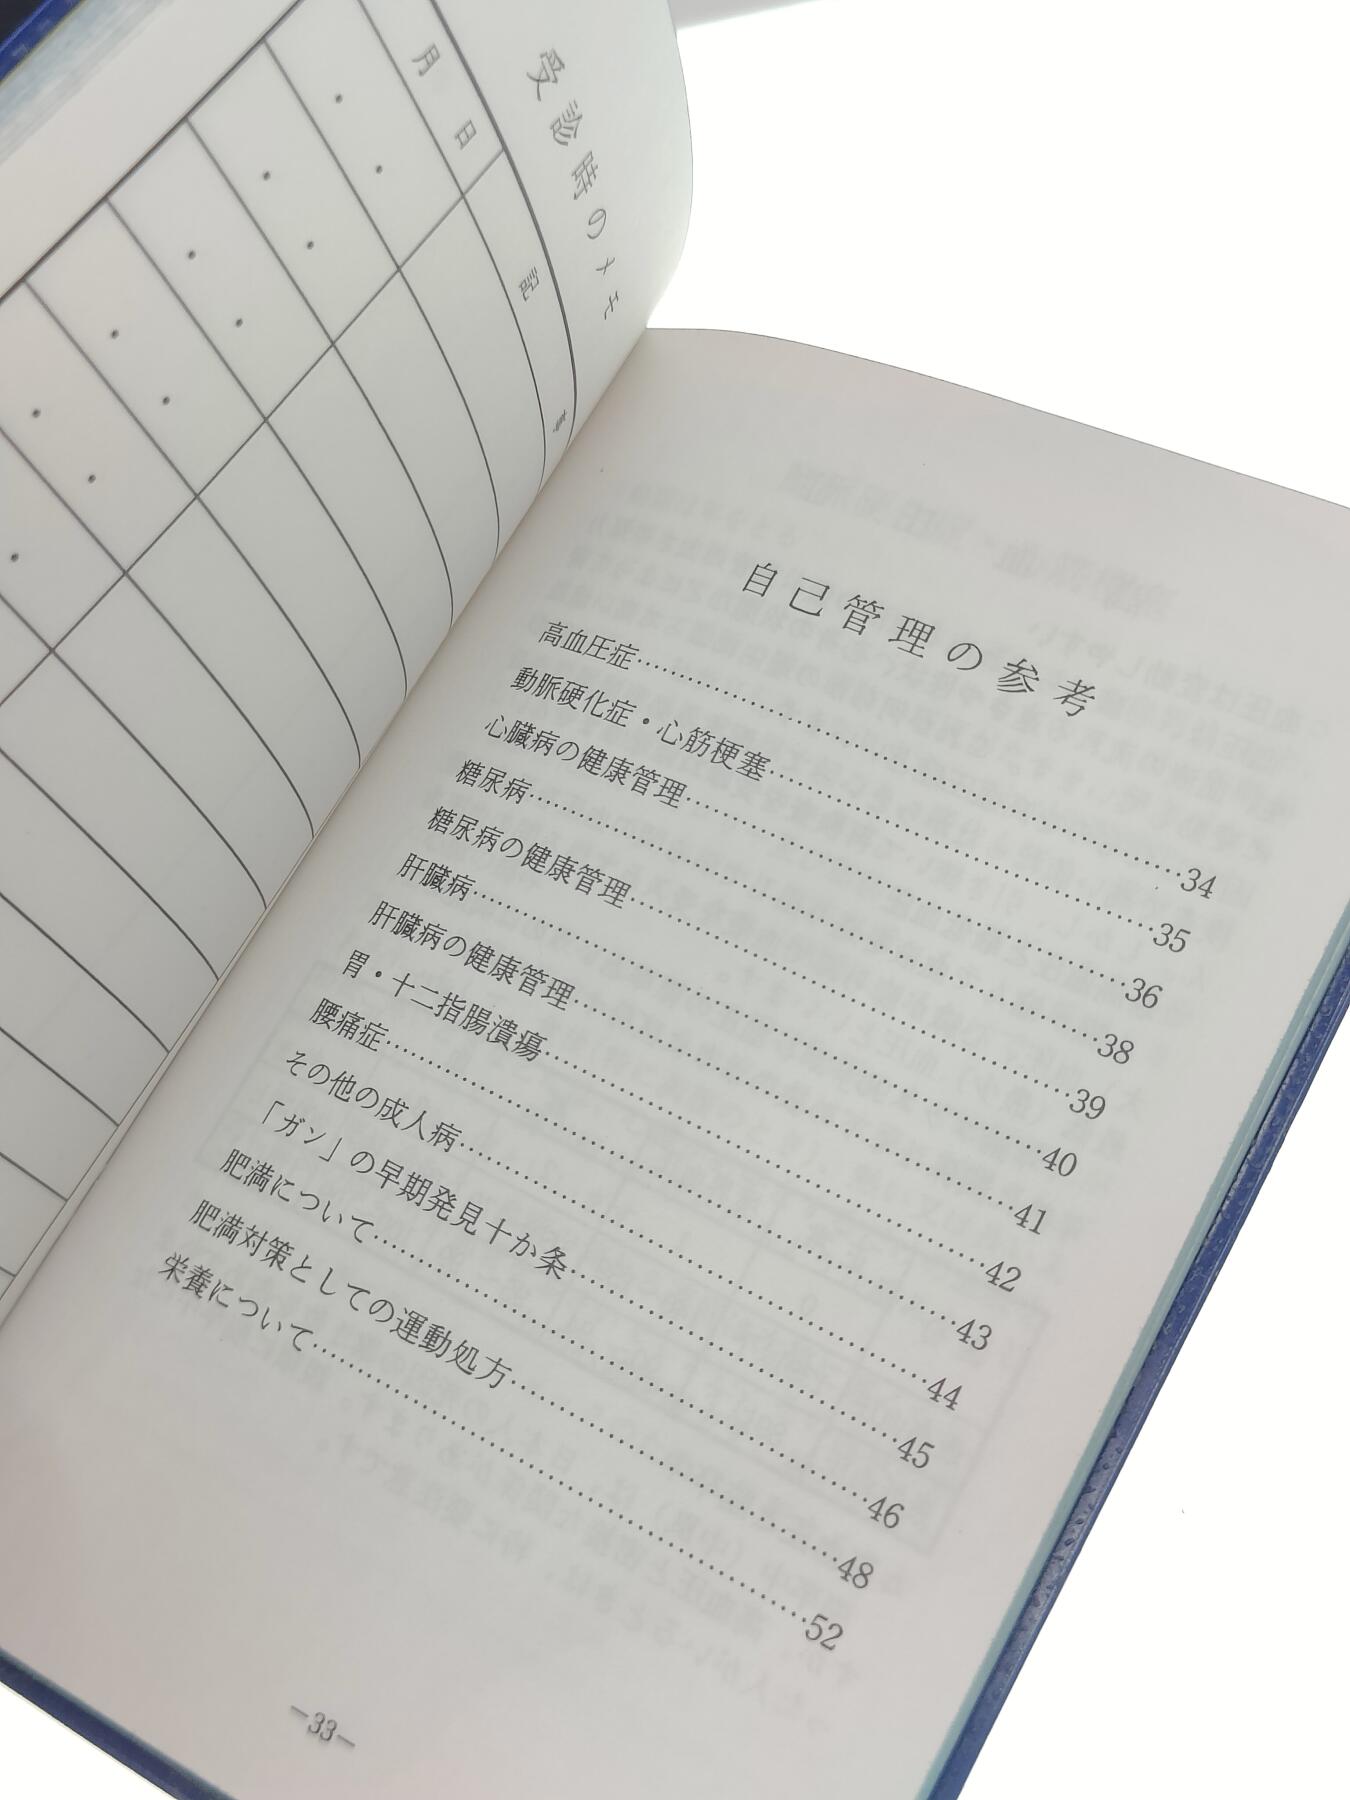 受診時のメモ
月 日
記
自己管理の参考
高血圧症……34
動脈硬化症・心筋梗塞……35
心臓病の健康管理……36
糖尿病……38
糖尿病の健康管理……39
肝臓病……40
肝臓病の健康管理……41
胃・十二指腸潰瘍……42
腰痛症……43
その他の成人病……44
「ガン」の早期発見十か条……45
肥満について……46
肥満対策としての運動処方……48
栄養について……52
—33—